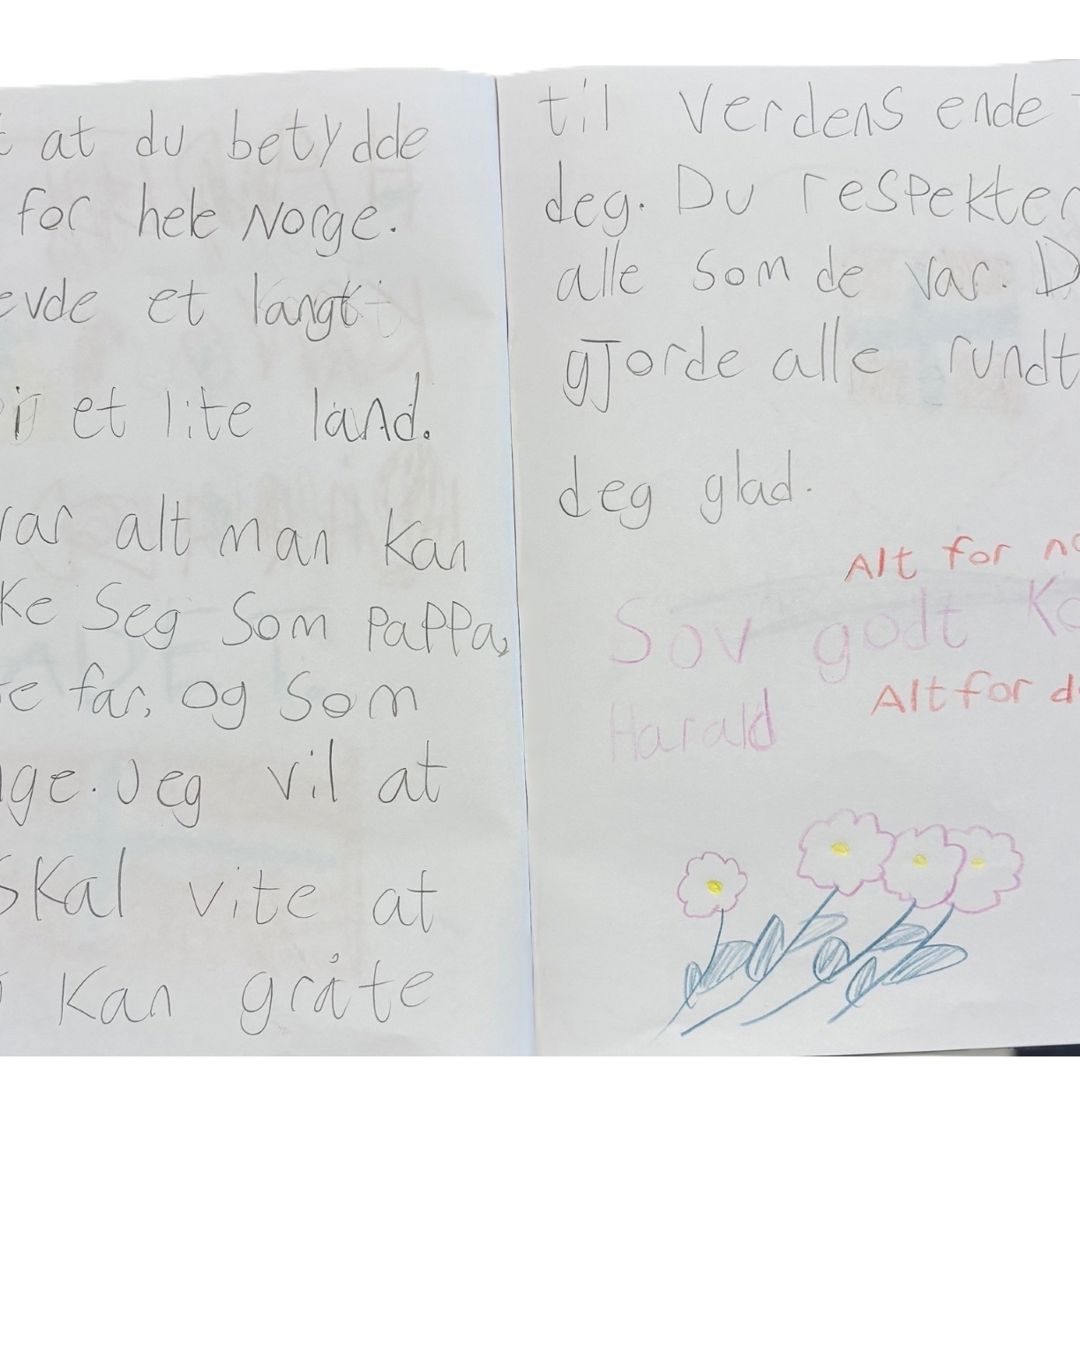 at du betydde
for hele Norge.
evde et langt
et lite land.
var alt man kan
ke seg som pappa,
e far, og som
ge. Jeg vil at
skal vite at
kan gråte
til verdens ende
deg. Du respekter
alle som de var. D
gjorde alle rundt
deg glad.
Alt for no
Sov godt Ko
Alt for d
Harald